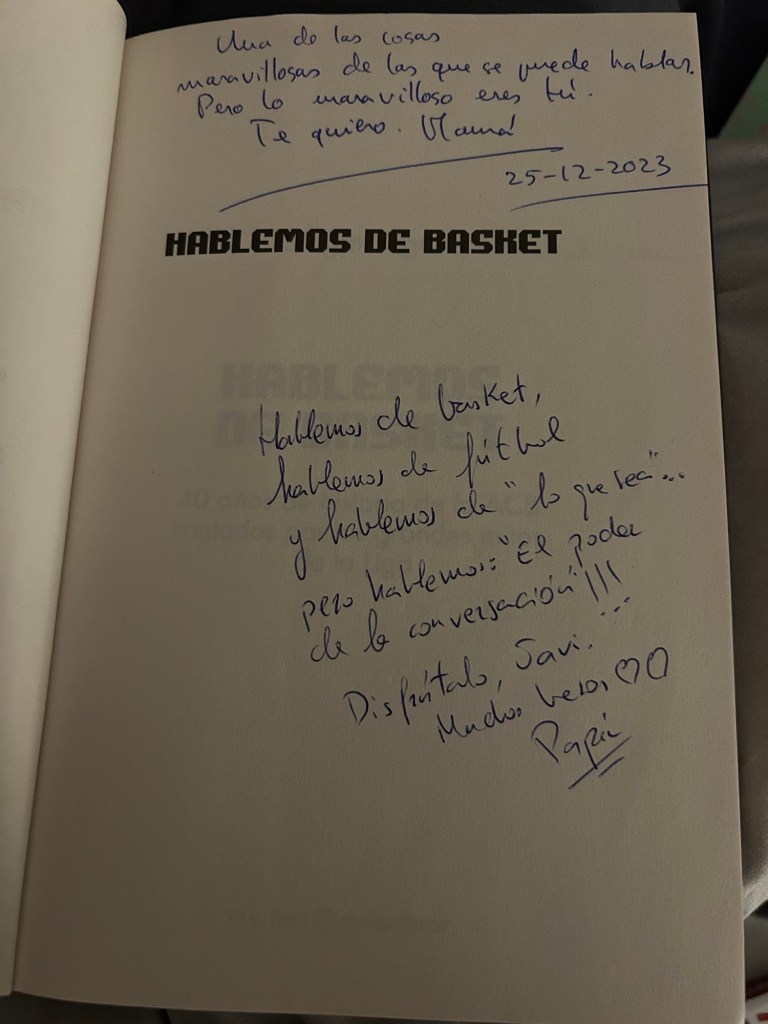 Una de las cosas
maravillosas de las que se puede hablar.
Pero lo maravilloso eres tú.
Te quiero. Mamá
25-12-2023
HABLEMOS DE BASKET
HABLEMOS
DE BASKET
Hablemos de basket,
hablemos de fútbol
y hablemos de "lo que sea"...
pero hablemos: "El poder
de la conversación"!!!
Disfrútalo, Javi.
Muchos besos ♡♡
Papá